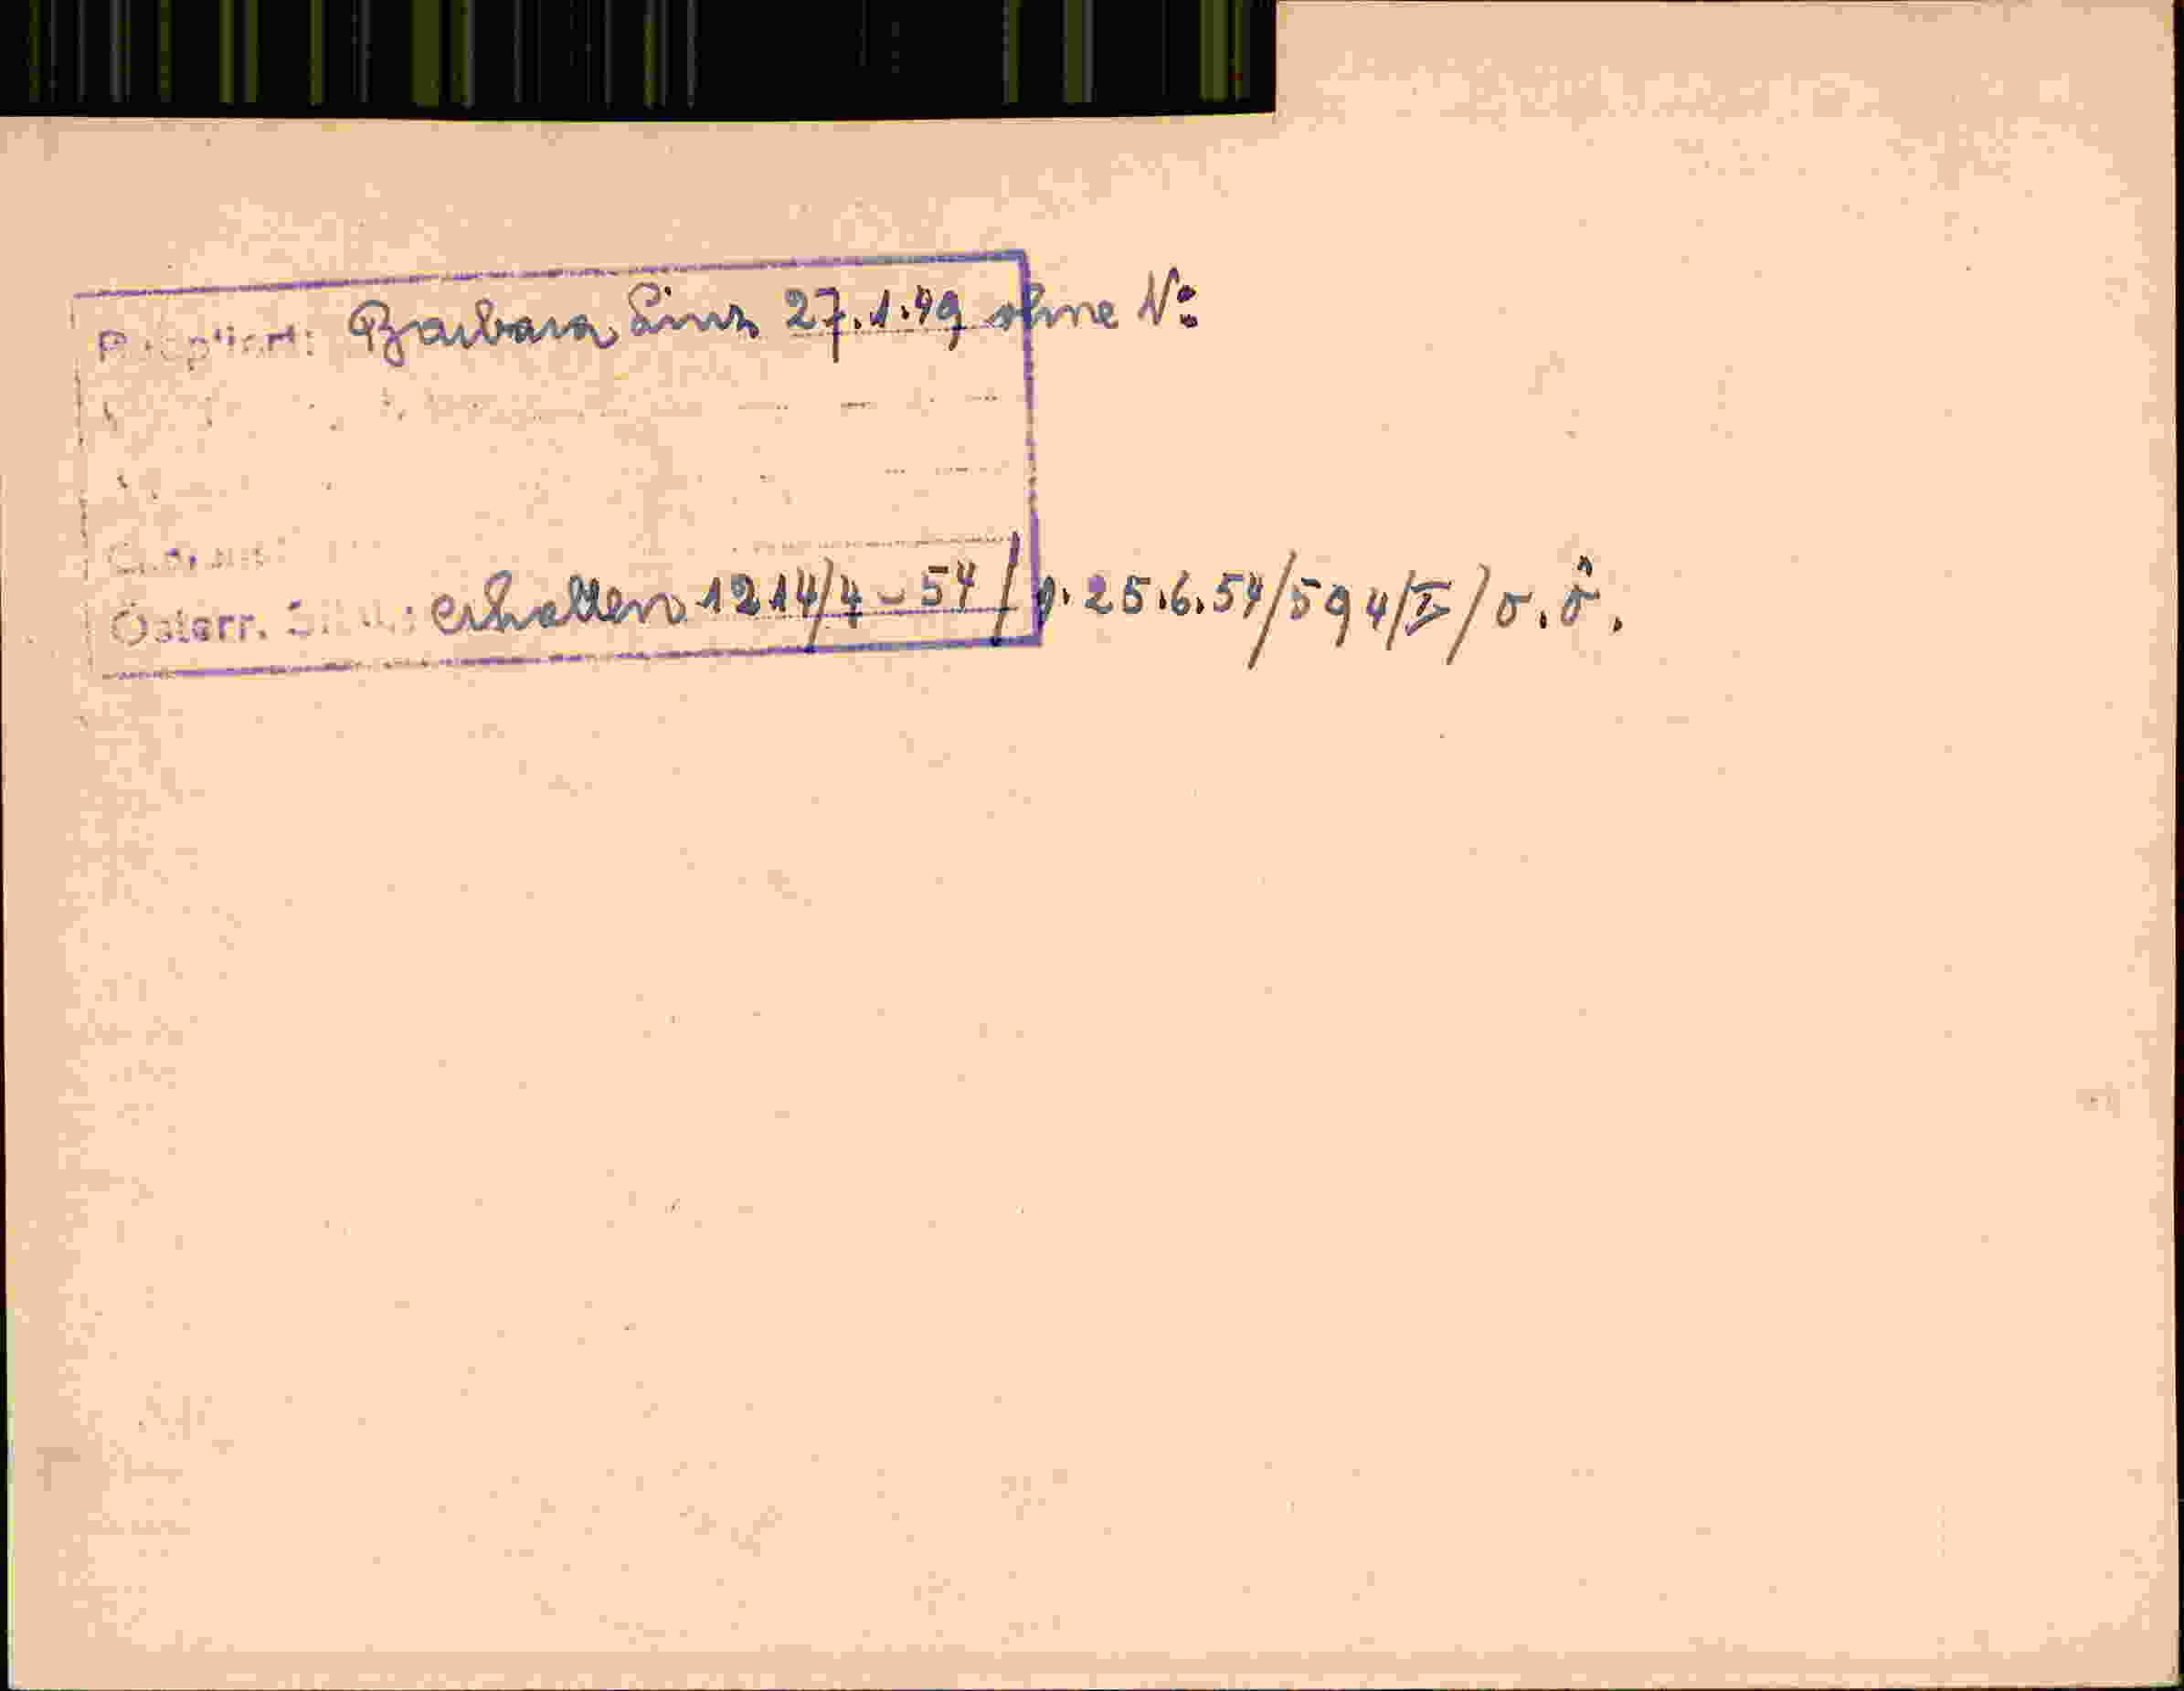 Barbara Linz 27.1.49 ohne No
Österr. erhalten 1214/4-54/v. 25.6.54/594/I/o.ö.